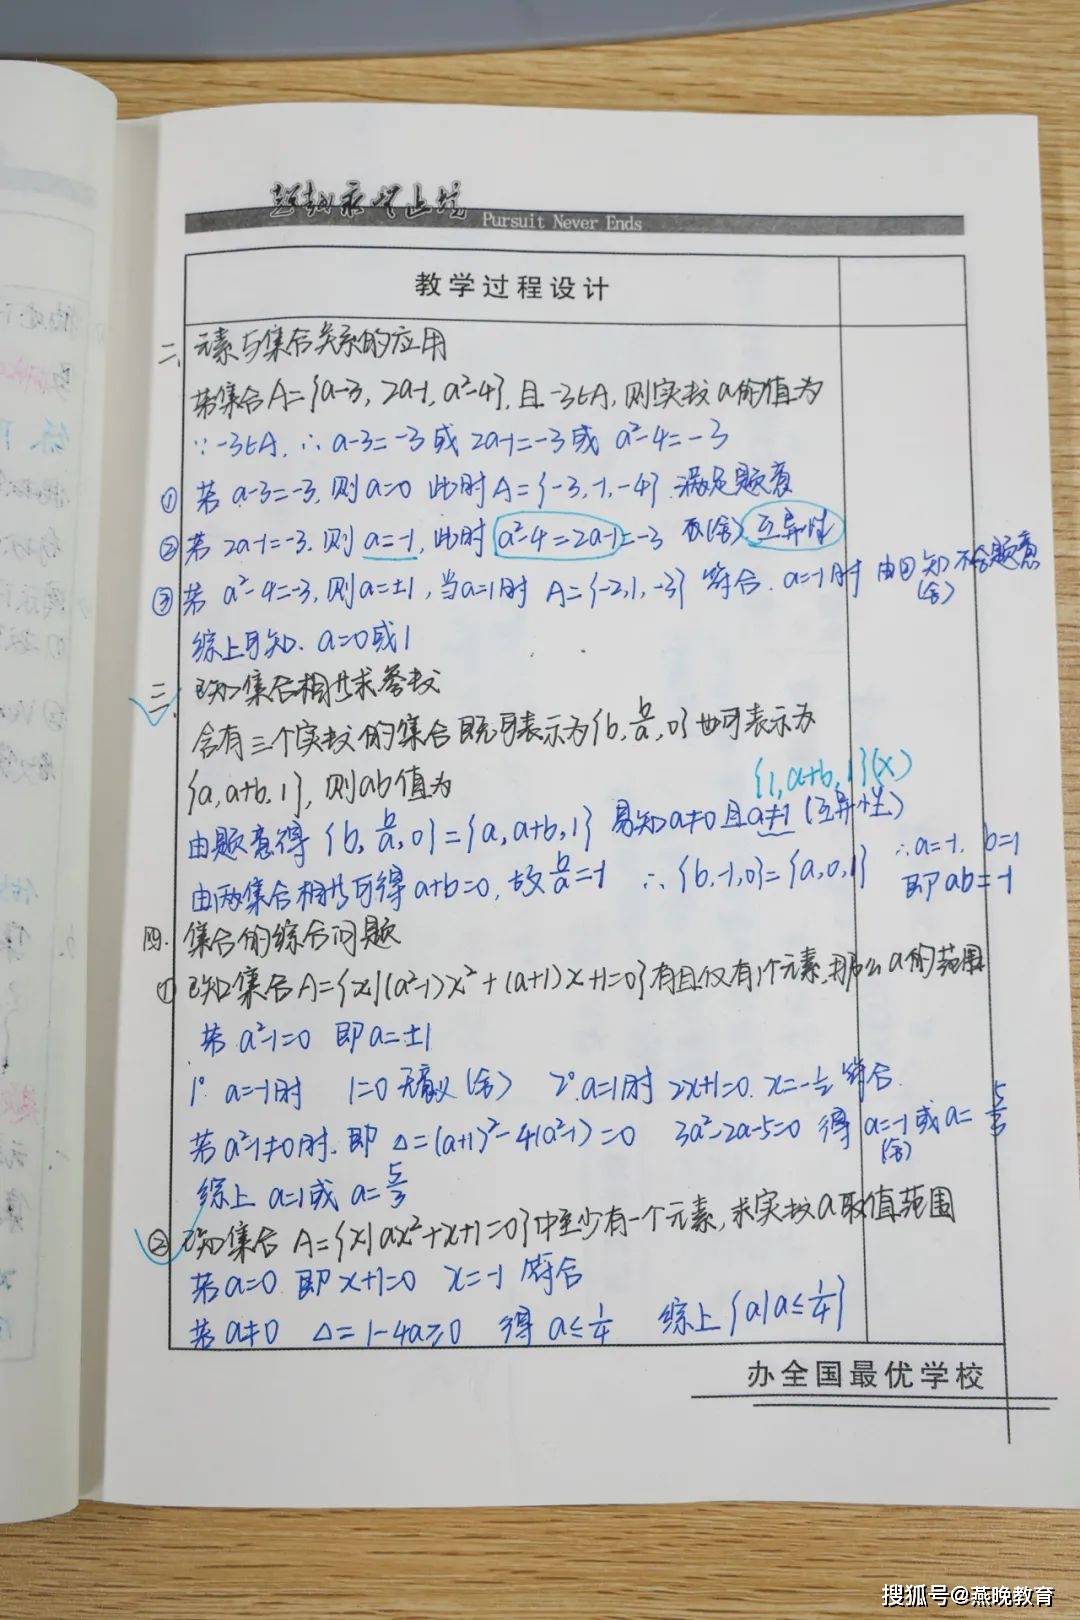 超越永无止境
Pursuit Never Ends
教学过程设计
二、元素与集合关系的应用
若集合A={a-3, 2a-1, a²-4}, 且-3∈A, 则实数a的值为
∵-3∈A, ∴ a-3=-3 或 2a-1=-3 或 a²-4=-3
① 若 a-3=-3, 则a=0 此时A={-3,-1,-4} 满足题意
② 若 2a-1=-3, 则 a=-1, 此时 a²-4=2a-1=-3 (舍) 互异性
③ 若 a²-4=-3, 则a=±1, 当a=1时 A={-2,1,-3} 符合. a=-1时 由②知不合题意
(舍)
综上可知. a=0或1
三、已知集合相等求参数
含有三个实数的集合既可表示为{b, b/a, 0}也可表示为
{a, a+b, 1}, 则ab值为
{1, a+b, 1}(×)
由题意得 {b, b/a, 0}={a, a+b, 1} 易知a≠0且a≠1 (互异性)
由两集合相等可得a+b=0, 故b/a=-1 ∴{b,-1,0}={a,0,1} ∴a=-1, b=1
即ab=-1
四. 集合的综合问题
① 已知集合A={x|(a²-1)x²+(a+1)x+1=0}有且仅有1个元素,那么a的范围
若 a²-1=0 即a=±1
1° a=-1时 1=0 无意义(舍) 2°.a=1时 2x+1=0. x=-1/2 符合.
若a²-1≠0时. 即 Δ=(a+1)²-4(a²-1)=0 3a²-2a-5=0 得 a=-1或a=5/3
(舍)
综上 a=1或 a=5/3
② 已知集合 A={x|ax²+x+1=0}中至少有一个元素, 求实数a取值范围
若a=0 即x+1=0 x=-1 符合
若a≠0 Δ=1-4a≥0 得 a≤1/4 综上 {a|a≤1/4}
办全国最优学校
搜狐号@燕晚教育